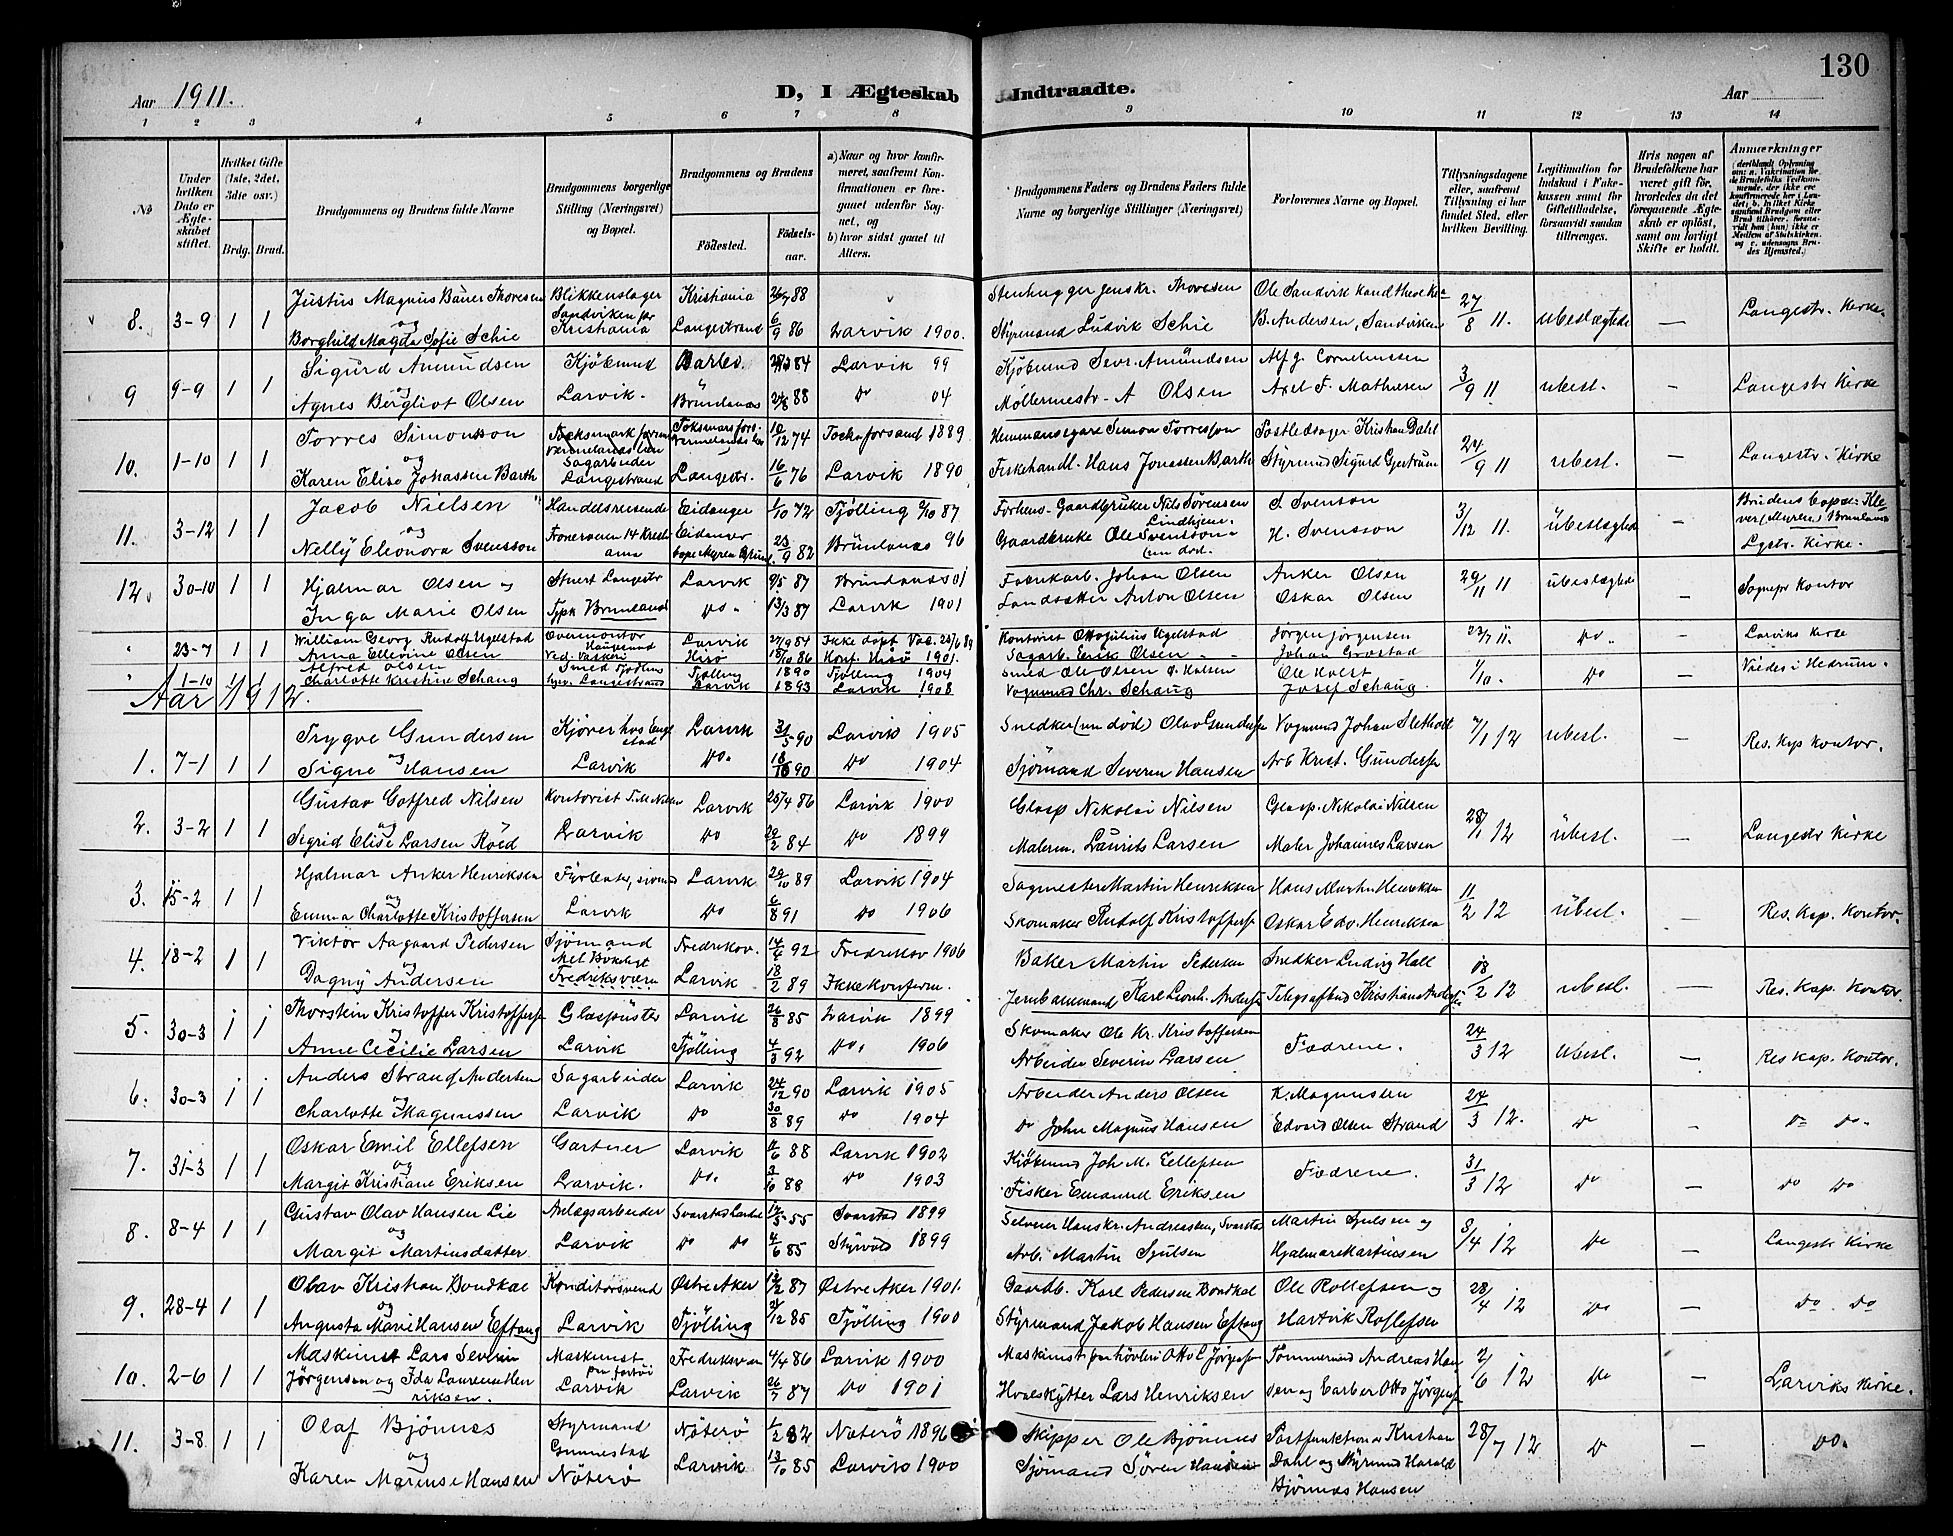 130
Aar 1911.
D, I Ægteskab Indtraadte.
Aar
1 2 3 4 5 6 7 8 9 10 11 12 13 14
No
Under hvilken Dato er Ægteskabet stiftet.
Hvilket Gifte (1ste, 2det, 3die osv.)
Brdg. Brud.
Brudgommens og Brudens fulde Navne
Brudgommens borgerlige Stilling (Næringsvei) og Bopæl.
Brudgommens og Brudens
Födested. Födselsaar.
a) Naar og hvor konfirmeret, saafremt Konfirmationen er foregaaet udenfor Sognet, og
b) hvor sidst gaaet til Alters.
Brudgommens Faders og Brudens Faders fulde Navne og borgerlige Stillinger (Næringsvei)
Forlovernes Navne og Bopæl.
Tillysningsdagene eller, saafremt Tillysning ei har fundet Sted, efter hvilken Bevilling.
Legitimation for Indskud i Enkekassen samt for Giftetilladelse, forsaavidt saadan tiltrænges.
Hvis nogen af Brudefolkene har været gift för, hvorledes da det foregaaende Ægteskab er oplöst, samt om lovligt Skifte er holdt.
Anmærkninger
8. 3-9 1 1 Justus Magnus Bauer Thoresen Blikkenslager Kristiania 26/7 88 Stenhugger Jens Kr. Thoresen Ole Sandvik
og Sandviken for Kristiania 27/8 11. ubeslægtede — Langestr. Kirke.
Borghild Magda Sofie Schie Langestrand 6/9 86 Larvik 1900. Styrmand Ludvik Schie B. Andersen, Sandviken
9 9-9 1 1 Sigurd Amundsen Kjöbmnd 84 Larvik 99 Kjöbmnd Sevr. Amundsen Alf J. Corneliussen
og Larvik. 3/9 11 ubesl. — Langestr Kirke
Agnes Bergliot Olsen Brunlanæs 88 Do 04 Möllermestr. A Olsen Axel F. Mathisen
10. 1-10 1 1 Torres Simonson 10/12 74 1889 Hemmansegare Simon Torresson Postledsager Kristian Dahl
og Sagarbeider 24/9 11 ubesl. — Langestr. Kirke
Karen Elise Johassen Barth Langestrand Langestr. 16/6 76 Larvik 1890 Fiskehandl. Hans Jonassen Barth Styrmnd Sigurd Gjertrum
11. 3-12 1 1 Jacob Nielsen Handelsreisende Eidanger 1/10 72 Tjölling 87 Forhens. Gaardbruker Nils Sörensen Lindhjem. S. Svenson
og 3/12 11. übeslægtede — Brudens bopæl: Klever (Myren) Brunlanæs
Nelly Eleonora Svensson Eidanger 23/9 82 Brünlanæs 96 Gaardbruke Ole Svensson (nu död. H. Svensson Lgstr. Kirke.
12. 30-10 1 1 Hjalmar Olsen og Stuert Langestr Larvik 87 Brünlanæs 01 Fabrikarb. Johan Olsen Anker Olsen 29/11 11 übeslægtede Sognepr kontor
Inga Marie Olsen Typk Brunlanæs Do. 13/3 87 Larvik 1901 Anton Olsen Oskar Olsen
" 23-7 1 1 William Georg Rudolf Ugelstad Haugesund Larvik 27/9 84 Ikke döpt Vac. 23/6 89 Kontorist Otto Julius Ugelstad Jörgen Jörgensen 23/7 11. Do. — Larviks Kirke
Anna Ellevine Olsen Hisö 18/10 86 Konf. Hisö 1901. Sagarb. Erik Olsen Johan Graastad
" 1-10 1 1 Alfred Olsen Smed Tjölling 1890 Tjölling 1904 Smed Ole Olsen Ole Holst 1/10. Do — Viedes i Hedrum.
Charlotte Kristine Schaug Langestrand Larvik 1893 Larvik 1908 Vognmand Chr. Schaug Josef Schaug
Aar 1912.
1. 7-1 1 1 Trygve Gundersen Kjörer hos Engestad Larvik 31/5 90 Larvik 1905 Snedker (nu död) Olav Gundersen Vognmnd Johan Sletholt 7/1 12 ubesl. — Res. Kap kontor.
og
Signe Hansen Larvik Do. 18/10 90 Do 1904 Sjömand Severin Hansen Arb Krist. Gundersen
2. 3-2 1 1 Gustav Gotfred Nilsen Kontorist Larvik 25/4 86 Larvik 1900 Glasp Nikolai Nilsen Glasp. Nikolai Nilsen 28/1 12 übesl. — Langestr Kirke
og
Sigrid Elise Larsen Röed Larvik Do 29/2 84 Do 1899 Malerm. Laurits Larsen Maler Johannes Larsen
3. 15-2 1 1 Hjalmar Anker Henriksen Larvik 29/10 89 Larvik 1904 Sagmester Martin Henriksen Hans Martin Henriksen 11/2 12 übesl. — Res. Kap. Kontor.
og
Emma Charlotte Kristoffersen Larvik Do 6/8 91 Do 1906 Skomaker Rudolf Kristoffersen Oskar Edv. Henriksen
4. 18-2 1 1 Viktor Aagaard Pedersen Sjömand Fredriksv. 14/4 92 Fredriksv 1906 Baker Martin Pedersen Snedker Ludvig Hall 18/2 12 ubesl. — Res. Kap. Kontor
og
Dagny Andersen Fredriksværn Larvik 18/2 89 Ikke konferm. Jernbanemand Karl Leonh. Andersen Telegrafbud Kristian Andersen
5. 30-3 1 1 Thorstein Kristoffer Kristoffersen Glaspüster Larvik 26/8 85 Larvik 1899 Skomaker Ole Kr. Kristoffersen Fædrene. 24/3 12 ubesl. — Res kap. kontor.
og
Anne Cecilie Larsen Larvik Tjölling 4/3 92 Do. 1906 Arbeider Severin Larsen
6. 30-3 1 1 Anders Strand Andersen Sagarbeider Larvik 24/12 90 Larvik 1905 Arbeider Anders Olsen K. Magnussen 24/3 12. Do Do Do.
og
Charlotte Magnussen Larvik Do 30/8 89 Do 1904 Do John Magnus Hansen Edvard Olsen Strand
7. 31-3 1 1 Oskar Emil Ellefsen Gartner Larvik 88 Larvik 1902 Kjöbmnd Joh M. Ellefsen Fædrene. 31/3 12 Do — Do Do
og
Margit Kristiane Eriksen Larvik. Do. 3/10 88 Do 1903 Fisker Emanuel Eriksen
8. 8-4 1 1 Gustav Olav Hansen Lie Anlægsarbeider 55 Svarstad 1899 Selveier Hans Kr. Andreassen, Svarstad Martin Sjulsen og 8/4 12 Do — Langestr Kirke
og
Margit Martinsdatter Larvik Do Do 4/6 85 Styrvold 1899 Arb. Martin Sjulsen Hjalmar Martinsen
9. 28-4 1 1 Olav Kristian Bondkal Konditorsvend Östre Aker 12/2 87 Östre Aker 1901. Gaardb. Karl Pedersen Bondkal Ole Rollefsen og 28/4 12 Do — Do Do
og
Augusta Marie Hansen Eftang Larvik Tjölling 21/12 85 Tjölling 1900 Styrmand Jakob Hansen Eftang Hartvik Rollefsen
10. 2-6 1 1 Maskinist Lars Severin Maskinist Fredriksværn 4/4 86 Larvik 1900 Maskinist Otto C Jörgensen Tömmermnd Andreas Hansen 2/6 12 Do — Larviks Kirke.
Jörgensen og Ida Laurense Henriksen. Larvik Larvik 26/7 87 Do 1901 Hvalskytter Lars Henriksen Otto Jörgensen
11. 3-8 1 1 Olaf Bjönnes Styrmand Nöterö 1/2 82 Nöterö 1896 Skipper Ole Bjönnes Postfunktionær Kristian 28/7 12 Do — Do.
og
Karen Marense Hansen Nöterö Larvik 13/10 85 Larvik 1900 Sjömand Sören Hansen Dahl og Styrmnd Harald
Bjönnes Hansen